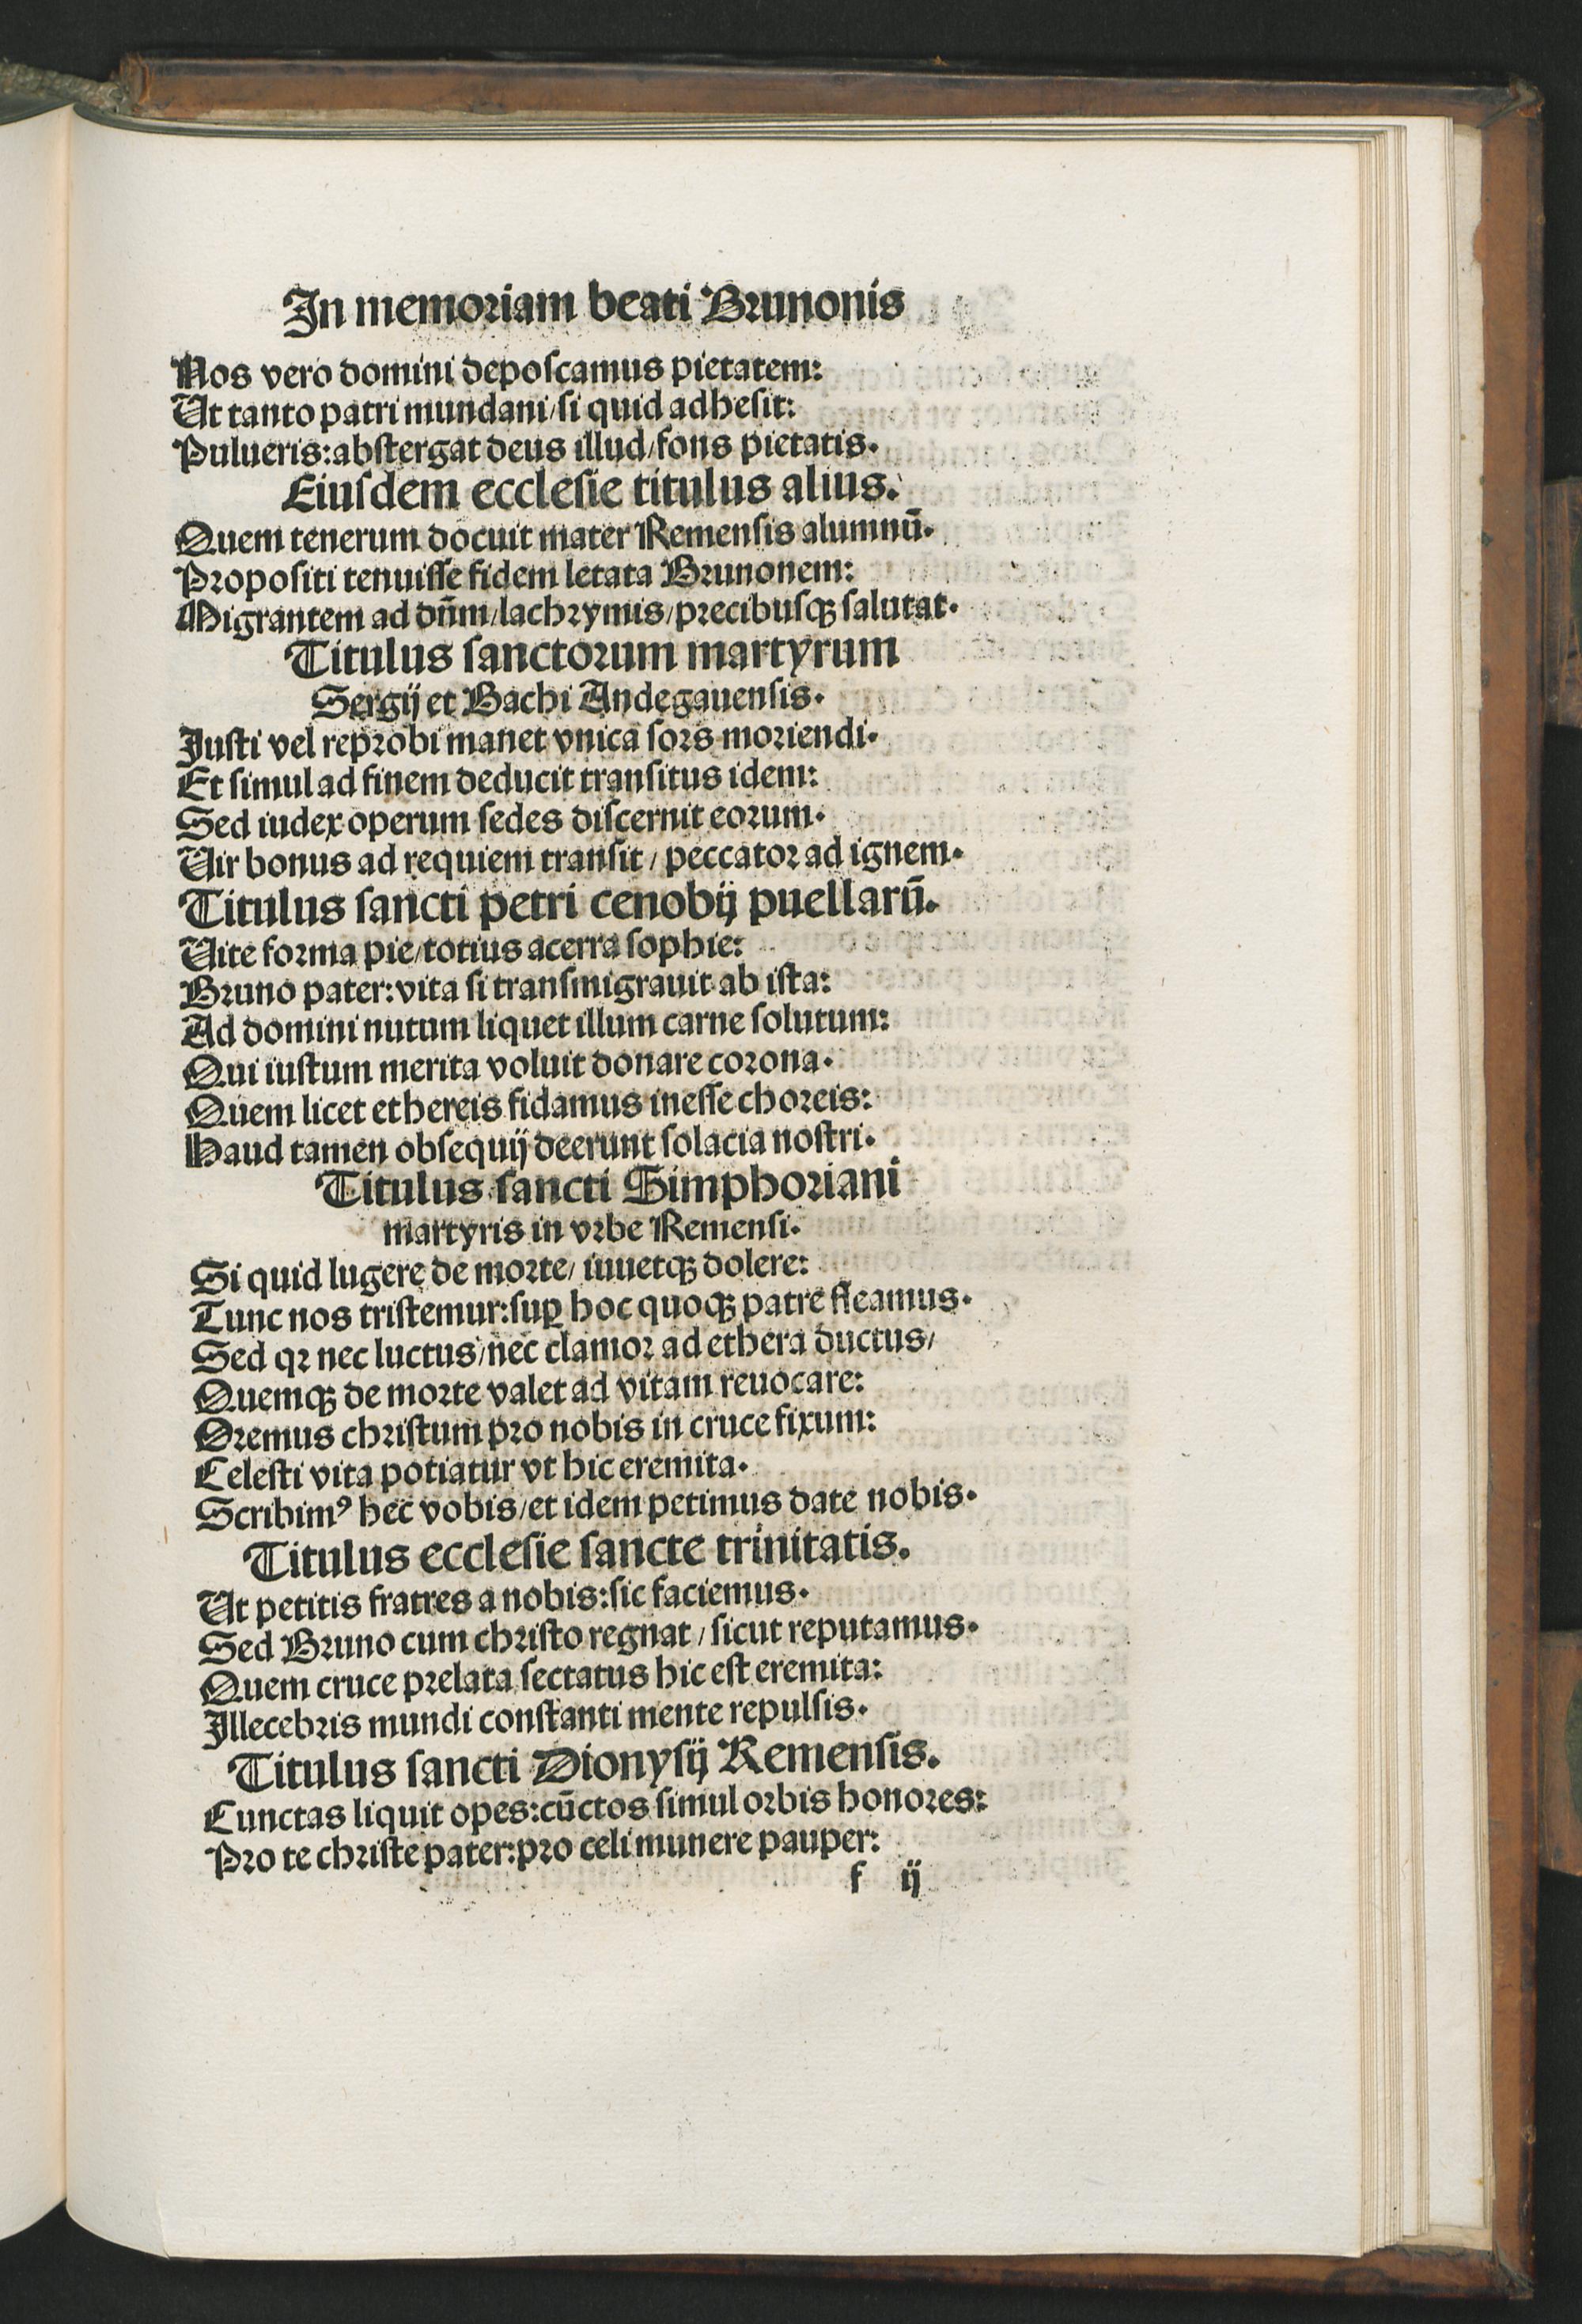 In memoriam beati Brunonis
Nos vero domini deposcamus pietatem:
Ut tanto patri mundani/si quid adhesit:
Pulueris:abstergat deus illud/fons pietatis.
Eiusdem ecclesie titulus alius.
Quem tenerum docuit mater Remensis alumnū.
Propositi tenuisse fidem letata Brunonem:
Migrantem ad dūm/lachrymis/precibusqꝫ salutat.
Titulus sanctorum martyrum
Sergij et Bachi Andegauensis.
Justi vel reprobi manet vnica sors moriendi.
Et simul ad finem deducit transitus idem:
Sed iudex operum sedes discernit eorum.
Uir bonus ad requiem transit / peccator ad ignem.
Titulus sancti petri cenobij puellarū.
Uite forma pie/totius acerra sophie:
Bruno pater:vita si transmigrauit ab ista:
Ad domini nutum liquet illum carne solutum:
Qui iustum merita voluit donare corona.
Quem licet ethereis fidamus inesse choreis:
Haud tamen obsequij deerunt solacia nostri.
Titulus sancti Simphoriani
martyris in vrbe Remensi.
Si quid lugere de morte/ iuuetqꝫ dolere:
Tunc nos tristemur:suꝑ hoc quoqꝫ patre fleamus.
Sed qꝛ nec luctus/nec clamor ad ethera ductus/
Quemqꝫ de morte valet ad vitam reuocare:
Oremus christum pro nobis in cruce fixum:
Celesti vita potiatur vt hic eremita.
Scribimꝰ hec vobis/et idem petimus date nobis.
Titulus ecclesie sancte trinitatis.
Ut petitis fratres a nobis:sic faciemus.
Sed Bruno cum christo regnat / sicut reputamus.
Quem cruce prelata sectatus hic est eremita:
Illecebris mundi constanti mente repulsis.
Titulus sancti Dionysij Remensis.
Cunctas liquit opes:cūctos simul orbis honores:
Pro te christe pater:pro celi munere pauper:
f ij